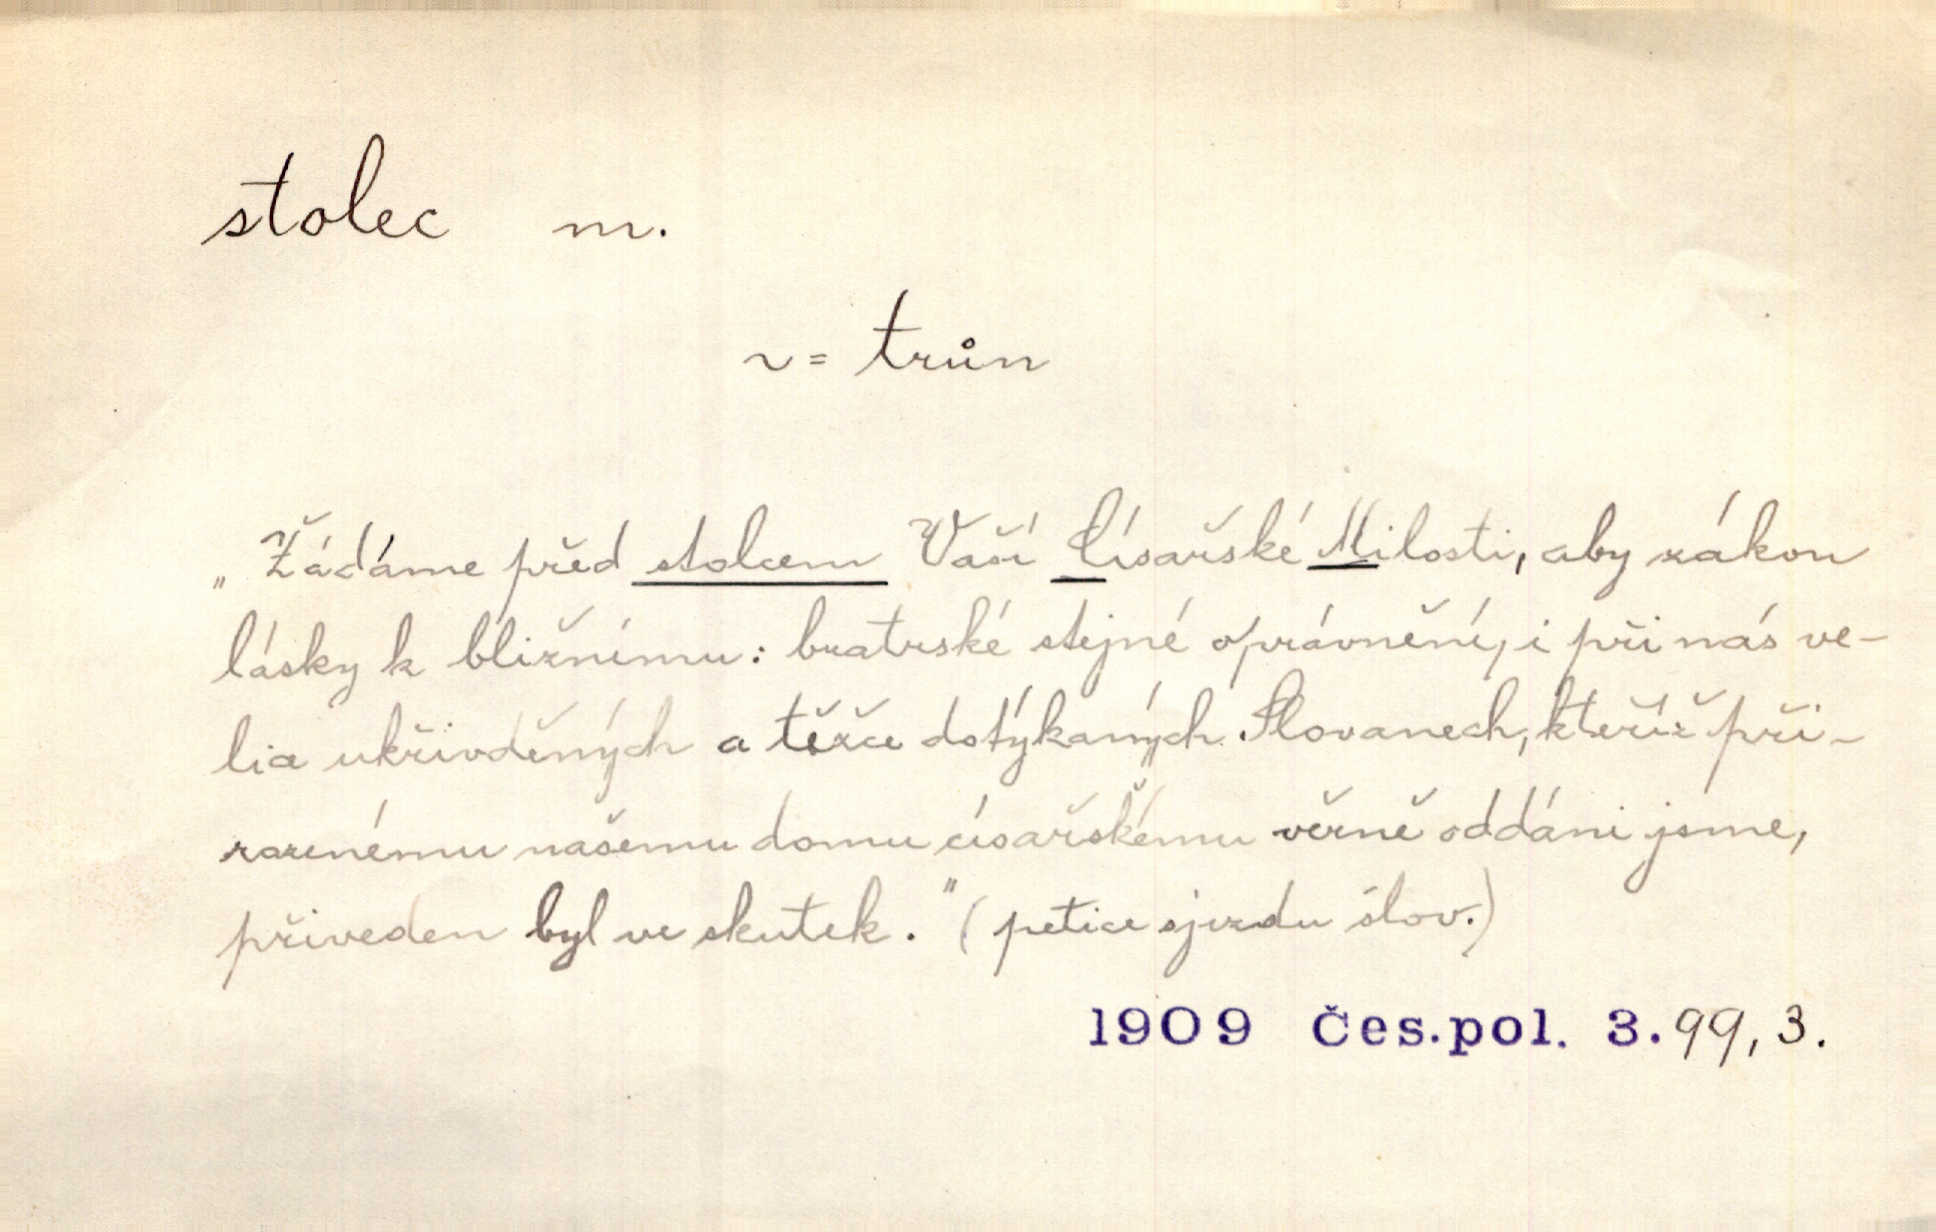 stolec m.
~ = trůn
„Žádáme před stolcem Vaší Císařské Milosti, aby zákon
lásky k bližnímu: bratrské stejné oprávnění, i při nás ve-
lia ukřivděných a těžce dotýkaných Slovanech, kteříž při-
rozenému našemu domu císařskému věrně oddáni jsme,
přiveden byl ve skutek." (petice sjezdu slov.)
1909 Čes.pol. 3.99,3.